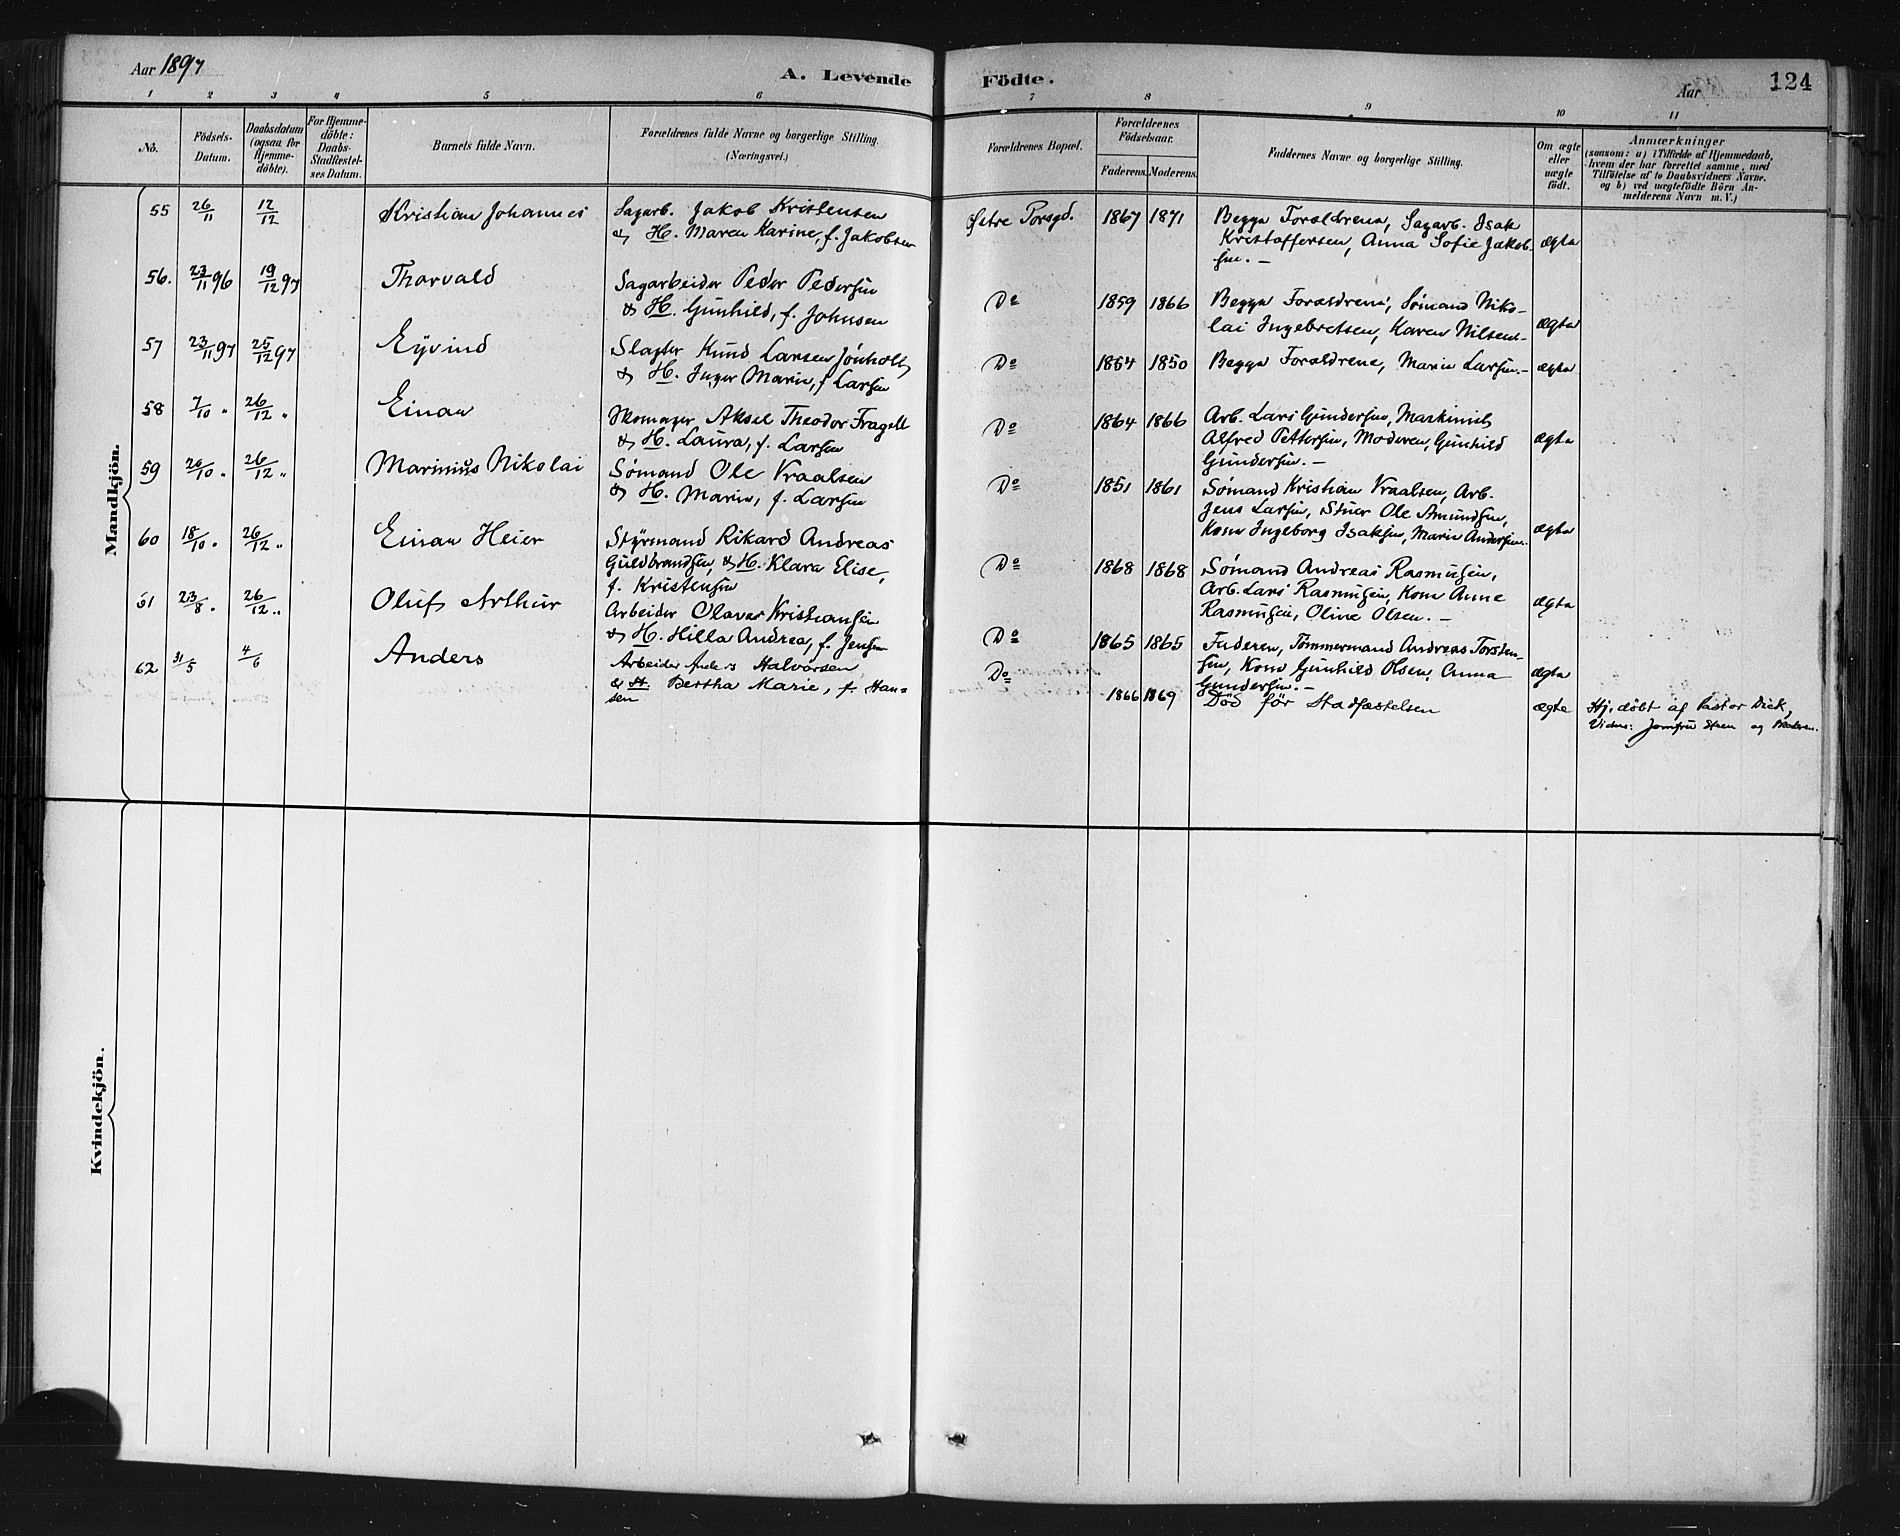 Aar 1897
A. Levende
Födte.
Aar
124
1 2 3 4 5 6 7 8 9 10 11
No.
Födsels-
Datum.
Daabsdatum
(ogsaa for
Hjemme-
döbte).
For Hjemme-
döbte:
Daabs-
Stadfæstel-
ses Datum.
Barnets fulde Navn.
Forældrenes fulde Navne og borgerlige Stilling.
(Næringsvei.)
Forældrenes Bopæl.
Forældrenes
Födselsaar.
Faderens. Moderens.
Faddernes Navne og borgerlige Stilling.
Om ægte
eller
uægte
födt.
Anmærkninger
(saasom: a) i Tilfælde af Hjemmedaab,
hvem der har forrettet samme, med
Tilföielse af to Daabsvidners Navne.
og b) ved uægtefödte Börn An-
melderens Navn m. V.)
Mandkjön.
55 26/11 12/12 Kristian Johannes Sagarb. Jakob Kristensen
& H. Maren Karine, f. Jakobsen
Østre Porsgd. 1867 1871 Begge Forældrene, Sagarb. Isak
Kristoffersen, Anna Sofie Jakob-
sen. — ægte
56. 23/11 96 19/12 97 Thorvald Sagarbeider Peder Pedersen
& H. Gunhild, f. Johnsen
Do 1859 1866 Begge Forældrene, Sømand Niko-
lai Ingebretsen, Karen Nilsen. ægte
57 23/11 97 25/12 97 Eyvind Slagter Knud Larsen Jönholt
& H. Inger Marie, f. Larsen
Do 1854 1850 Begge Forældrene, Marie Larsen. — ægte
58 7/10 " 26/12 " Einar Skomager Aksel Theodor Fragell
& H. Laura, f. Larsen
Do 1864 1866 Arb. Lars Gundersen, Maskinist
Alfred Pettersen, Moderen, Gunhild
Gundersen. — ægte
59 26/10 " 26/12 " Marinius Nikolai Sömand Ole Vraalsen
& H. Marie, f. Larsen
Do 1851 1861 Sömand Kristian Vraalsen, Arb.
Jens Larsen, Stuer Ole Amundsen,
Kone Ingeborg Isaksen, Marie Andersen. ægte
60 18/10 " 26/12 " Einar Heier Styrmand Rikard Andreas
Guldbrandsen, & H. Klara Elise,
f. Kristensen
Do 1868 1868 Sömand Andreas Rasmusen,
Arb. Lars Rasmusen, Kone Anne
Rasmusen, Oline Olsen. — ægte
61 23/8 " 26/12 " Oluf Arthur Arbeider Olaves Kristiansen
& H. Hilla Andrea, f. Jensen
Do 1865 1865 Faderen, Tømmermand Andreas Torsten-
sen, Kone Gunhild Olsen, Anna
Gundersen. — ægte
62 31/5 4/6 Anders Arbeider Anders Halvorsen
& H. Bertha Marie, f. Han-
sen
Do 1866 1869 Död för Stadfæstelsen ægte Hj. døbt af Pastor Dick,
Vidne: Jomfru Steen og Moderen.
Kvindekjön.